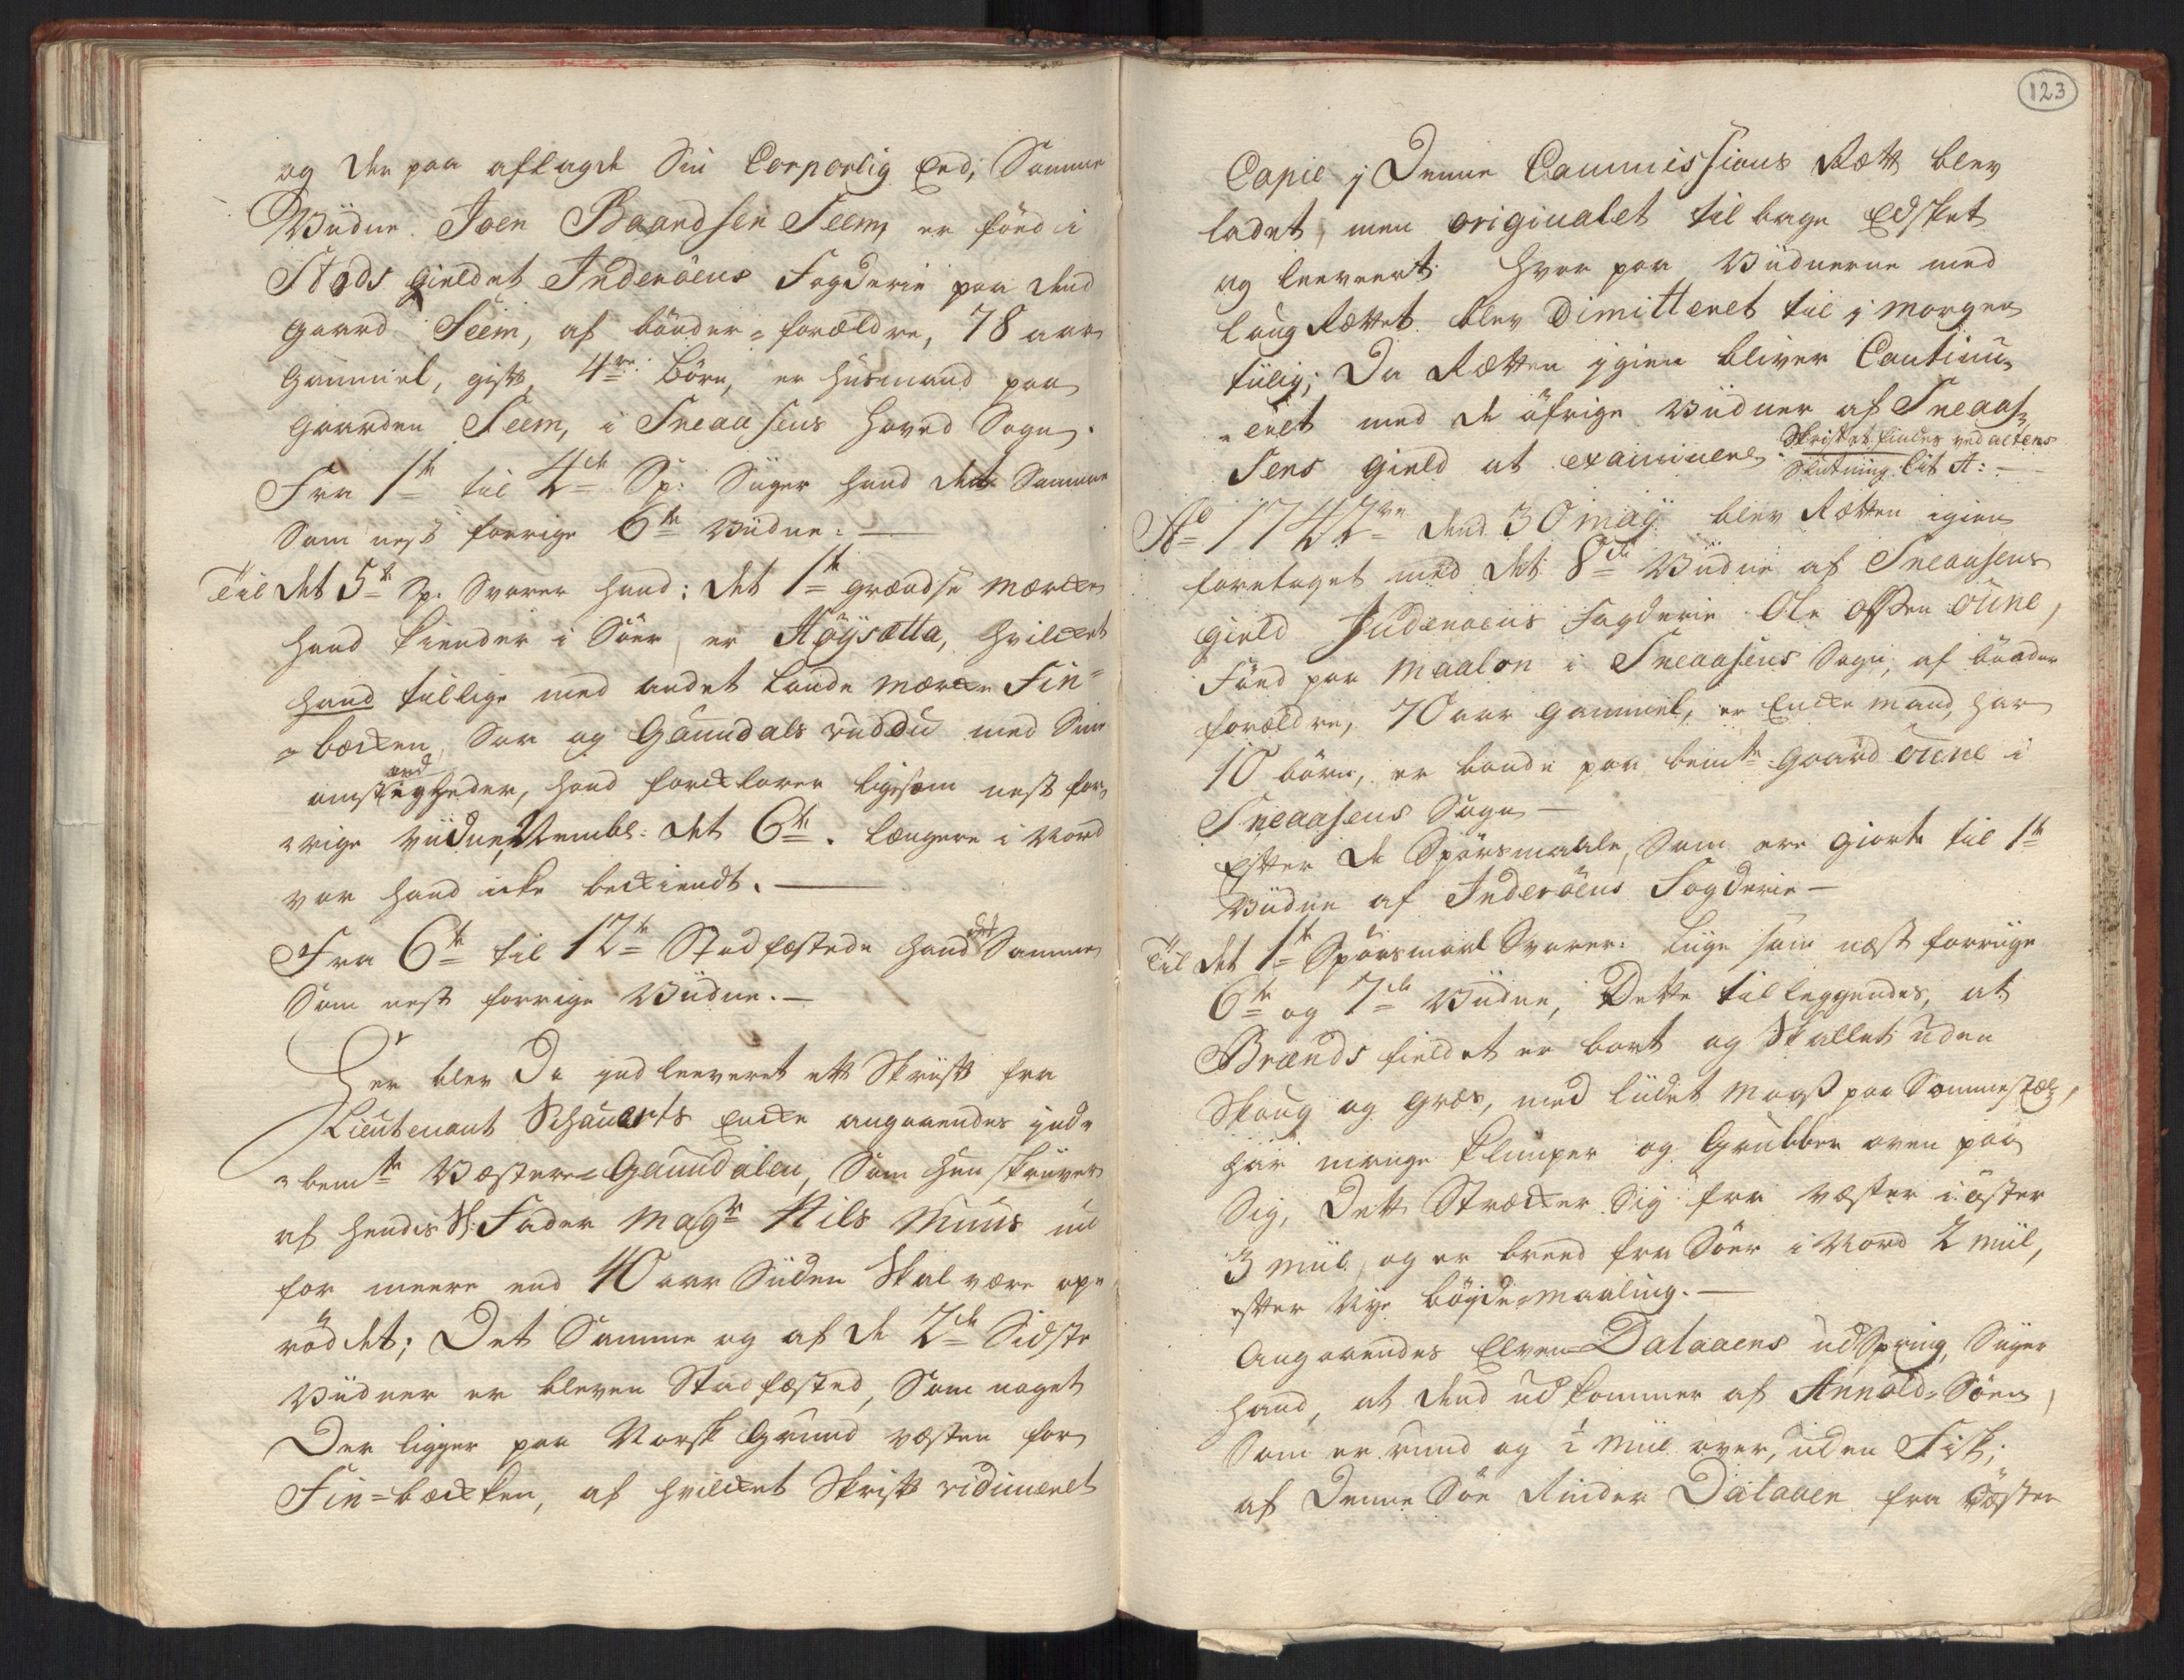 og der paa aflagde Sin Corporlig Eed; Samme
Viidne. Joen Baardsen Seem, er föed i
Stods gieldet Inderöens Fogderie paa dend
gaard Seem, af bönder-forældre, 78 aar
gammel, gift, 4re. Börn, er huusmand paa
gaarden Seem, i Sneaasens Hoved Sogn.
Fra 1te til 4de Sp: Siiger hand det Samme
Som nest forrige 6te Viidne: —
Til det 5te Sp. Svarer hand: det 1te grændse mærcke
hand kiender i Söer, er Höÿsætta, hvilcket
hand tillige med andet Lande mærcke Fin-
-bæcken, Sær og Gaundals ruddu med Sine
omstændigheder, hand forcklarer ligesom nest for-
-rige Viidne, Nembl: det 6te. længere i Nord
var hand icke beckiendt. —
Fra 6te til 12te Stadfæstede hand det Samme
Som nest forrige Viidne. —
Her blev Da indleeveret ett Skriift fra
Lieutenant Schauerts Encke angaaendes ind-
-bemte Væstere-Gaundalen, Som hun skriiver
af hendis Sl: Fader Magr Nils Muus nu
for meere end 40 aar Siiden Skal være op-
röddet; Det Samme og af de 2de Sidste
Viidner er bleven Stadfæsted, Som noget
Der ligger paa Norsk Grund væsten for
Fin-bæckken, af hvilcket Skrift vidimeret
123
Copie j Denne Commissions Rætt blev
ladet, men originalet tilbage Edsket
og leeveert. Hvor paa Viidnerne med
laug Rættet blev Dimitteret til j Morgen
tiilig; Da Rætten igien bliver Continu-
-eret med de öfrige Viidner af Sneaas-
Sens gield at examinere. Skriftet findes ved actens
Slutning Lit A: —
Ao 1742re dend 30 maÿ blev Rætten igien
foretaget med det 8de Viidne af Sneaasens
gield Inderöens Fogderie Ole Olsen Öüne,
Föed paa Maalon i Sneaasens Sogn, af bönder
forældre, 70 aar gammel, er Encke mand, har
10 börn, er bonde paa bemte gaard öüne i
Sneaasens Sogn —
Efter de Spörsmaale, Som ere giorte til 1te
Viidne af Inderöens Fogderie —
Til det 1te Spörsmaal Svarer: Liige som næst forriige
6te og 7de Viidne, Dette tilleggendes, at
Brænds fieldet er bart og Skallet uden
Skoug og græs, med liidet Maaß paa Sommestæd,
har mange Klumper og Grubber oven paa
Sig, Dett Stræcker Sig fra væster i öster
3 miil, og er breed fra Söer i Nord 2 miil,
efter Nÿe böÿde-maaling. —
Angaaendes Elven Dalaaens udspring, Siiger
hand, at dend udkommer af Annold-Söen,
Som er rund og ½ miil over, uden Fisk;
af Denne Söe Rinder Dalaaen fra Væsten